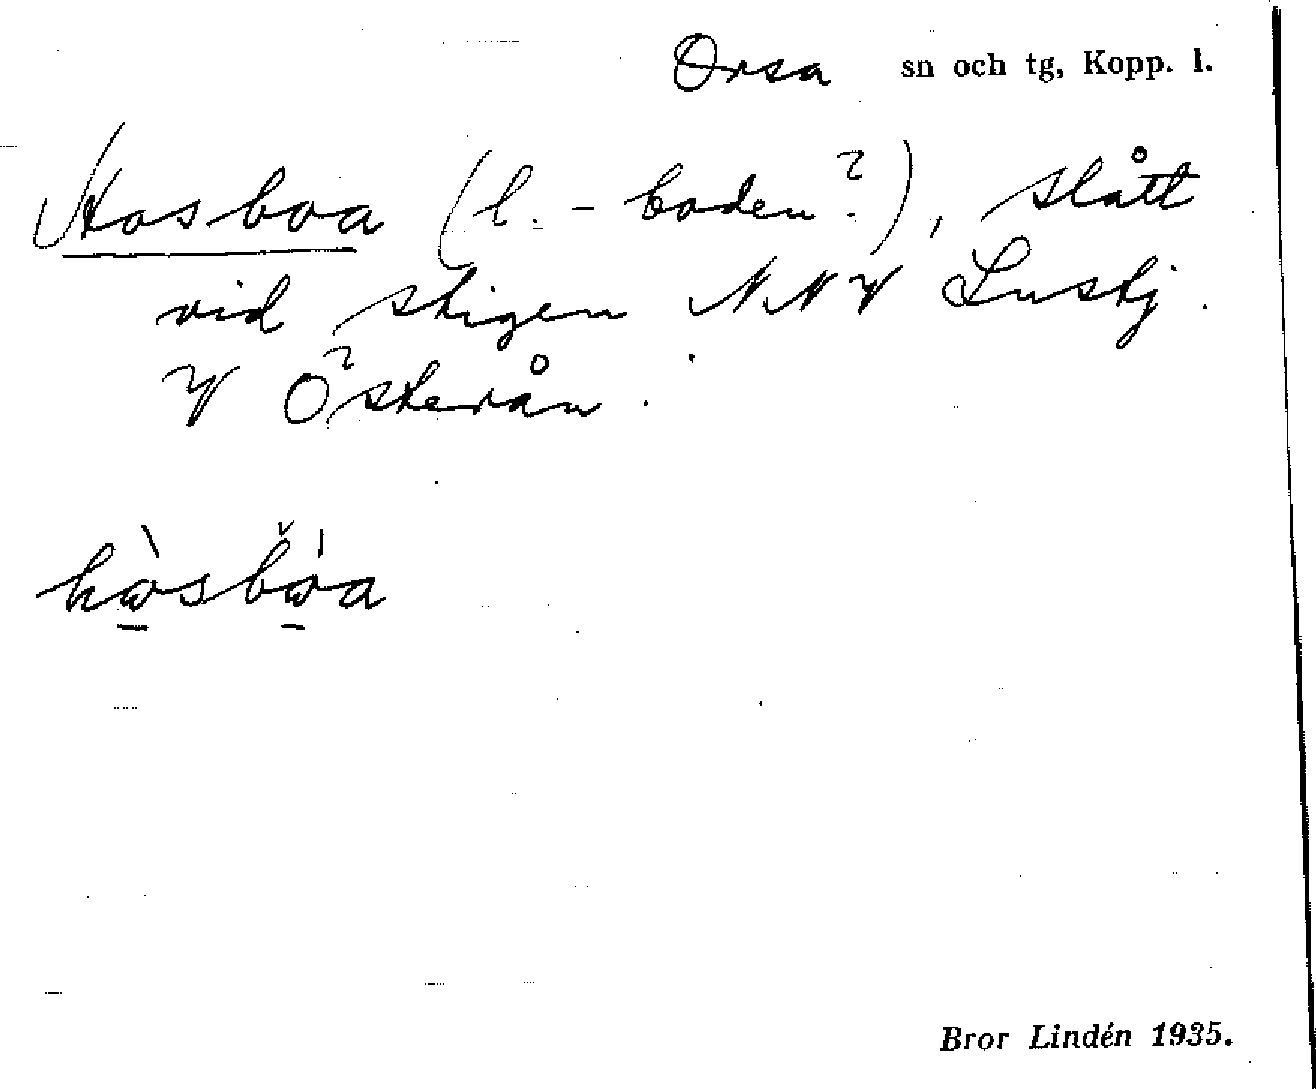 Orsa sn och tg, Kopp. l.
Hosboa (l. -boden?), slått
vid stigen NNV Lustj.
V Österån.
hɷ̠̀sbɷ̠̌́a
Bror Lindén 1935.